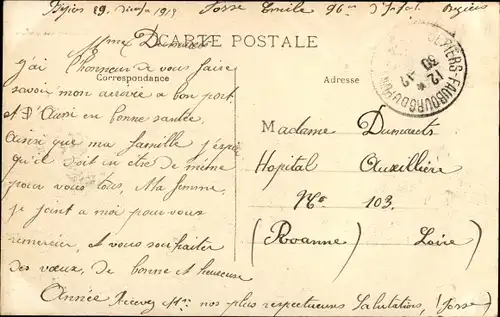 Béziers 29 1915 Fosse Emile 96me d'Infat. Béziers
CARTE POSTALE
Mme Dumarets
j'ai l'honneur de vous faire
Correspondance
savoir mon arrivée a bon port
et d'Aussi en bonne santée
Ainsi que ma famille j'espère
qu'il doit en etre de même
pour vous tous, Ma femme,
se joint a moi pour vous
remercier, et vous souhaiter
des vœux, de bonne et heureuse
Année Recevez Mme nos plus respectueuses Salutations, (Fosse)
BEZIERS-FAUBOURG-DU-PONT
12 *
30 -12
Adresse
Madame Dumarets
Hopital Auxillière
No 103.
(Roanne) Loire)